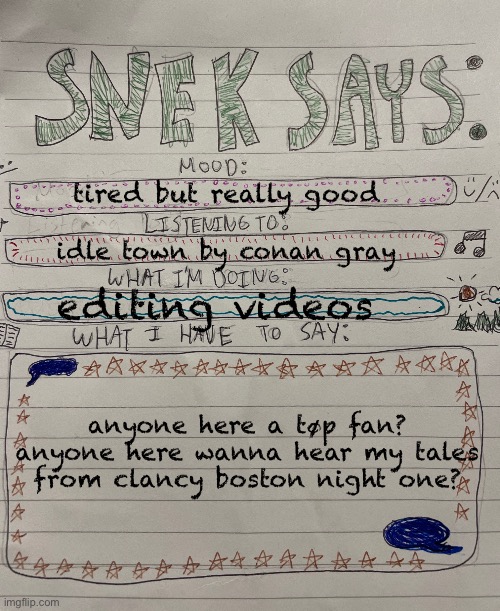 SNEK SAYS:
MOOD:
tired but really good
LISTENING TO:
idle town by conan gray
WHAT I'M DOING:
editing videos
WHAT I HAVE TO SAY:
anyone here a tøp fan?
anyone here wanna hear my tales
from clancy boston night one?
imgflip.com